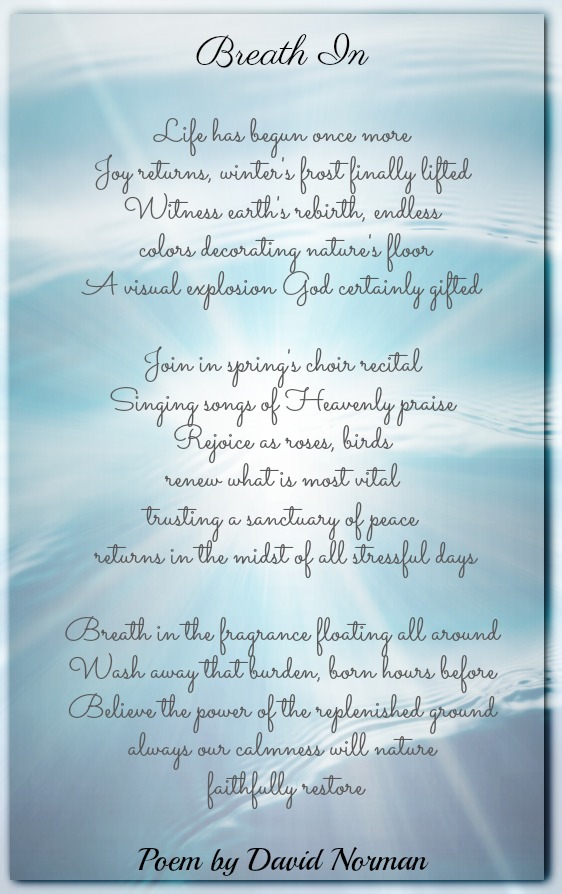 Breath In
Life has begun once more
Joy returns, winter's frost finally lifted
Witness earth's rebirth, endless
colors decorating nature's floor
A visual explosion God certainly gifted
Join in spring's choir recital
Singing songs of Heavenly praise
Rejoice as roses, birds
renew what is most vital
trusting a sanctuary of peace
returns in the midst of all stressful days
Breath in the fragrance floating all around
Wash away that burden, born hours before
Believe the power of the replenished ground
always our calmness will nature
faithfully restore
Poem by David Norman